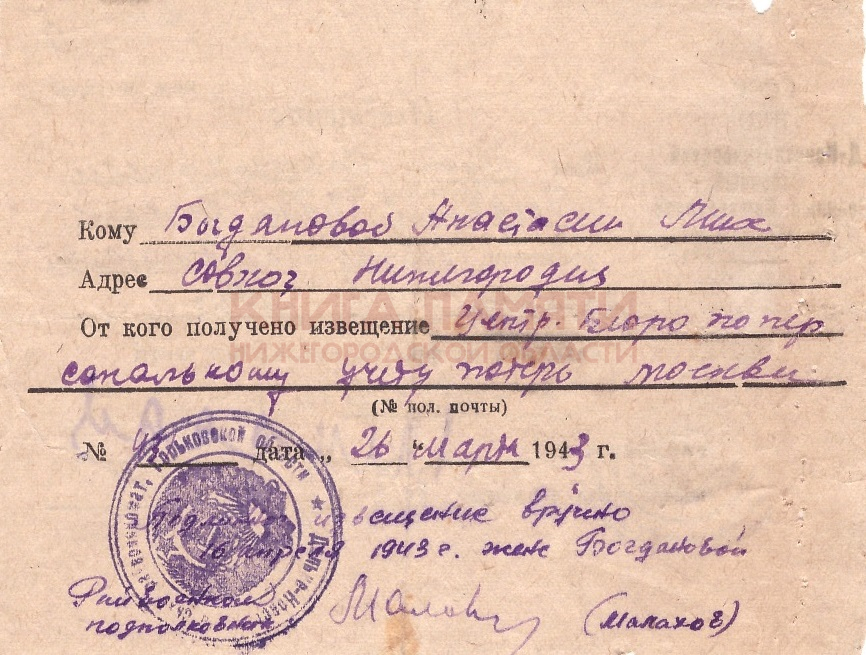 Кому Богдановой Анастасии Мих
Адрес совхоз Нижегородец
КНИГА ПАМЯТИ
От кого получено извещение Центр. Бюро по пер
НИЖЕГОРОДСКОЙ ОБЛАСТИ
сональному учету потерь Москвы
(№ пол. почты)
№ дата „ 26 " марта 1943 г.
Горьковской области
извещение вручено
16 апреля 1943 г. жене Богдановой
Райвоенком
подполковник (Малахов)